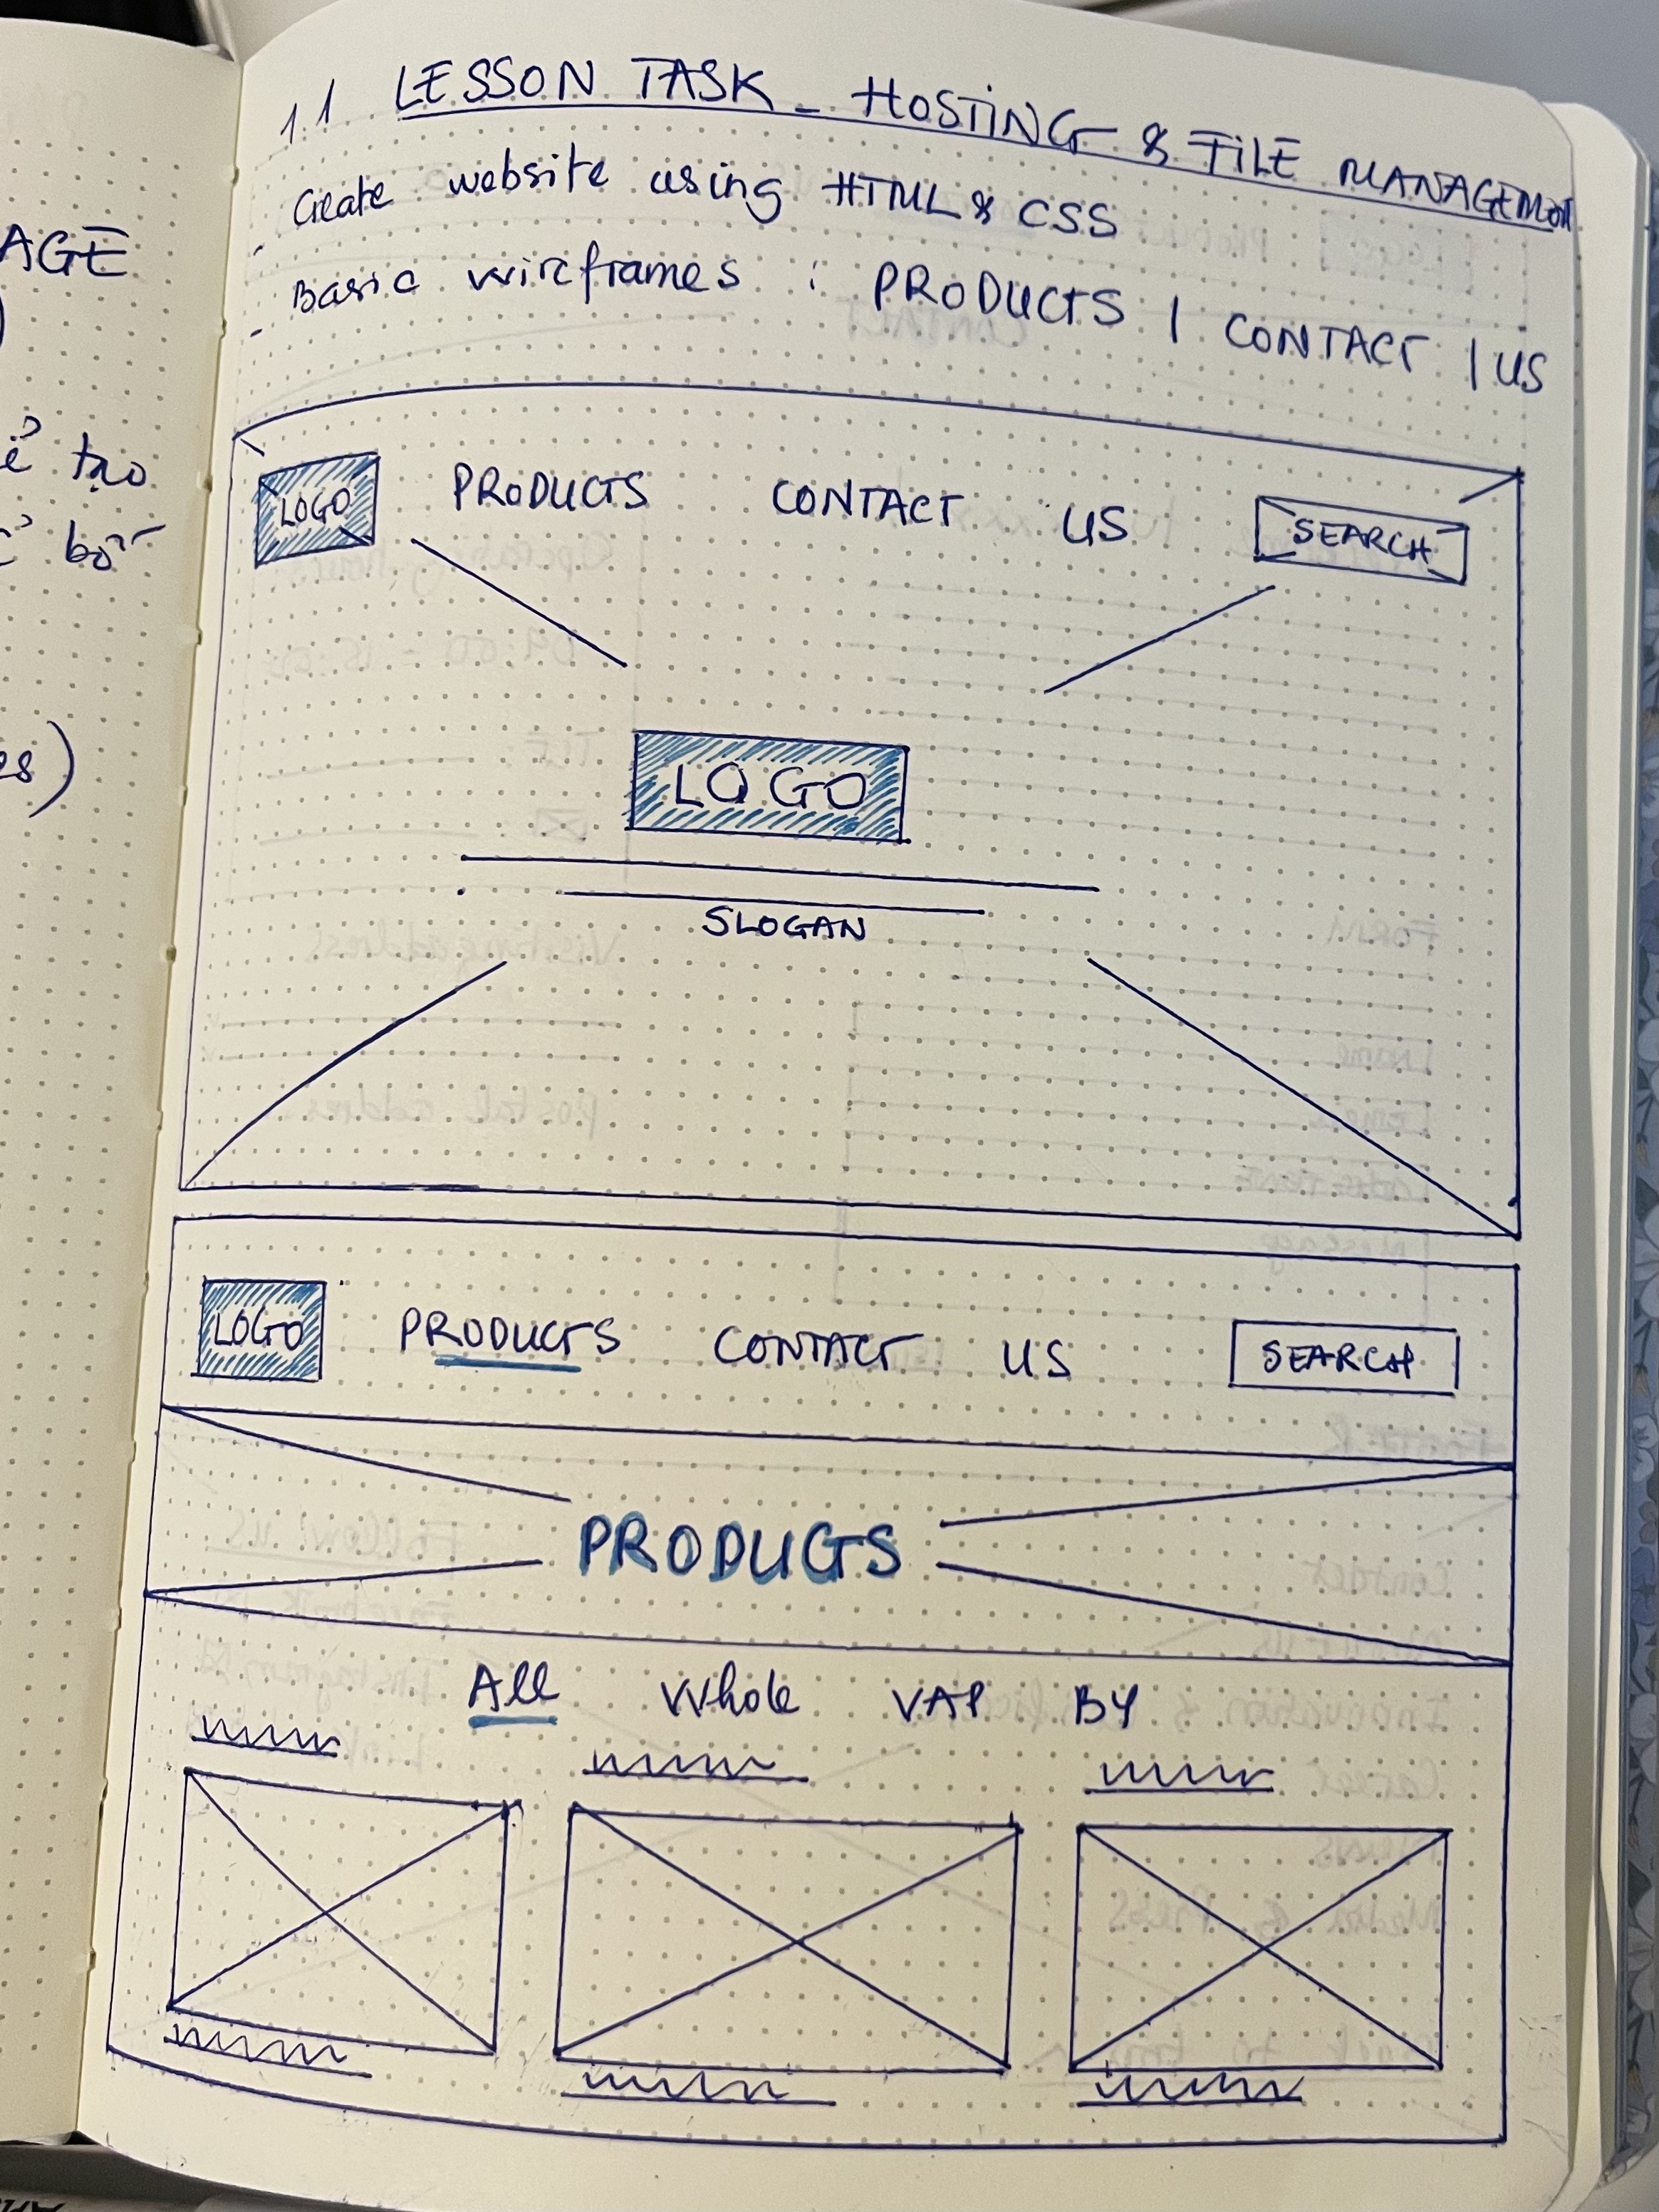 AGE
tạo
bởi
es)
1.1 LESSON TASK - HOSTING & FILE MANAGEMENT
- Create website using HTML & CSS
- Basic wireframes : PRODUCTS | CONTACT | US
LOGO PRODUCTS CONTACT US SEARCH
LOGO
SLOGAN
LOGO PRODUCTS CONTACT US SEARCH
PRODUCTS
All Whole VAP BY